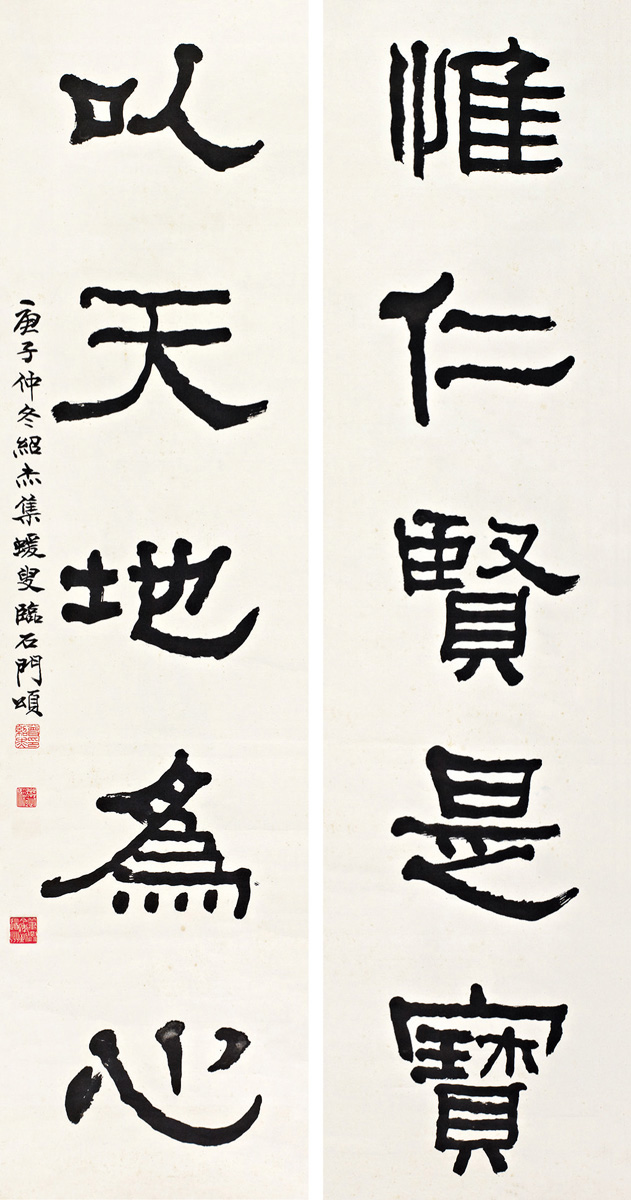 惟仁賢是寶
以天地為心
庚子仲冬紹杰集蝯叟臨石門頌